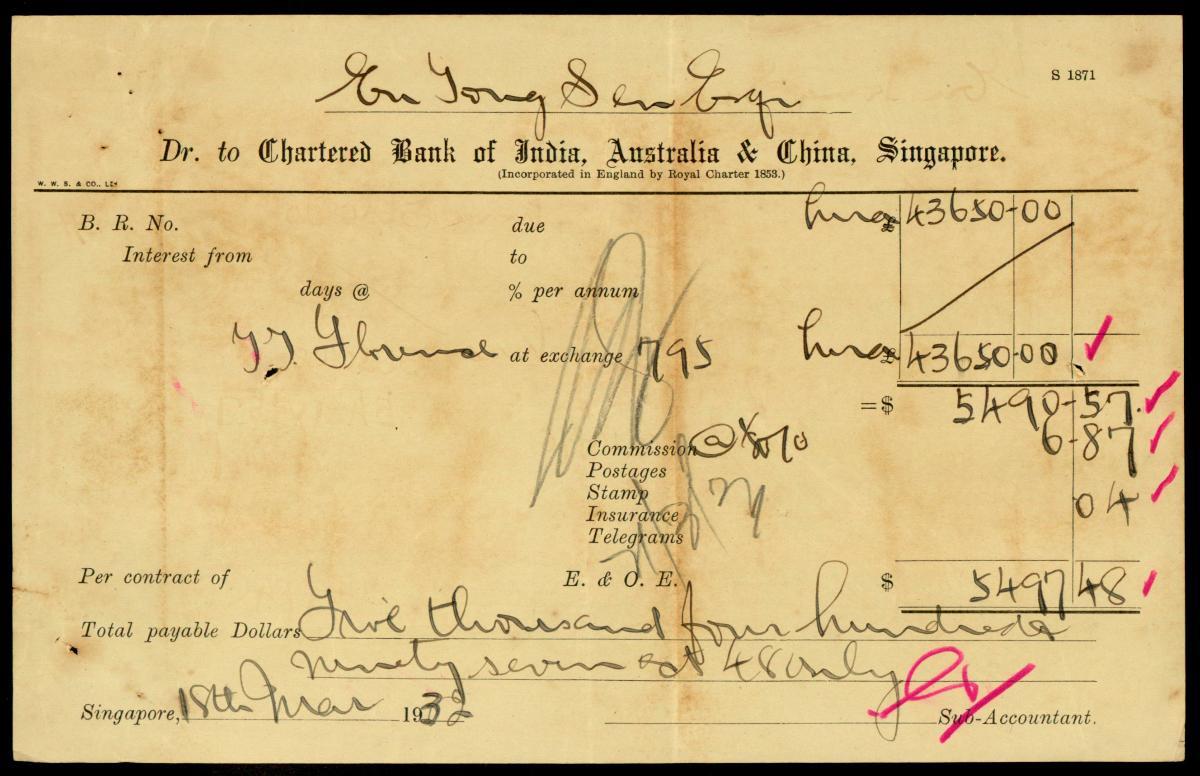 S 1871
Eu Tong Sen Esqr
Dr. to Chartered Bank of India, Australia & China, Singapore.
(Incorporated in England by Royal Charter 1853.)
W. W. S. & CO., LD.
B. R. No. due Lira £ 43650-00
Interest from to
days @ % per annum
T.T. Florence at exchange 795 Lira £ 43650-00
= $ 5490-57
Commission @ 1/8 % 6-87
Postages
Stamp 04
Insurance
Telegrams
Per contract of E. & O. E. $ 5497 48
Total payable Dollars Five thousand four hundred
ninety seven cts 48 only
Singapore, 18th Mar 1932 Sub-Accountant.